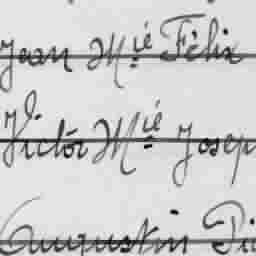 Jean Mié Félix
Victor Mié Josep
Augustin Pi